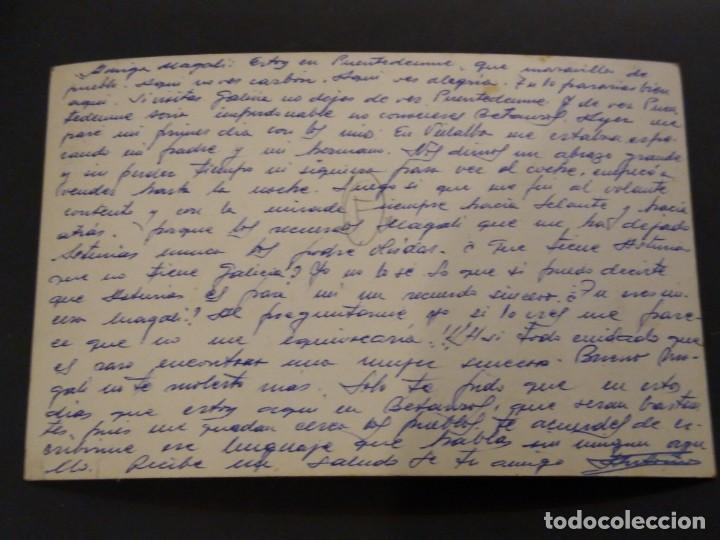 Amiga Magali: Estoy en Puentedeume, que maravilla de
pueblo. Aqui no ves carbón. Aqui ves alegria. Tu lo pasarias bien
aqui. Si visitas Galicia no dejes de ver Puentedeume y de ver Puen
tedeume seria imperdonable no conocieses Betanzos. Ayer me
pasé mi primer dia con los mios. En Villalba me estaban espe
rando mi padre y mi hermano. Nos dimos un abrazo grande
y sin perder tiempo ni siquiera para ver el coche, empecé a
vender hasta la noche. Luego si que me fui al volante
contento y con la mirada siempre hacia delante y hacia
atrás. Porque los recuerdos Magali que me ha dejado
Asturias nunca los podre olvidar. ¿Que tiene Asturias
que no tiene Galicia? Yo no lo se. Lo que si puedo decirte
que Asturias es para mi un recuerdo sincero. ¿Tu eres sin
cera Magali? De preguntarme yo si lo eres me pare
ce que no me equivocaria!!! Asi todo cuidado que
es raro encontrar una mujer sincera. Bueno Ma
gali no te molesto mas. Solo te pido que en estos
dias que estoy aqui en Betanzos, que seran bastan
tes, pues me quedan cerca los pueblos, te acuerdes de es
cribirme ese lenguaje que hablas sin ningun orgu
llo. Recibe un saludo de tu amigo
todocoleccion
todocoleccion.net